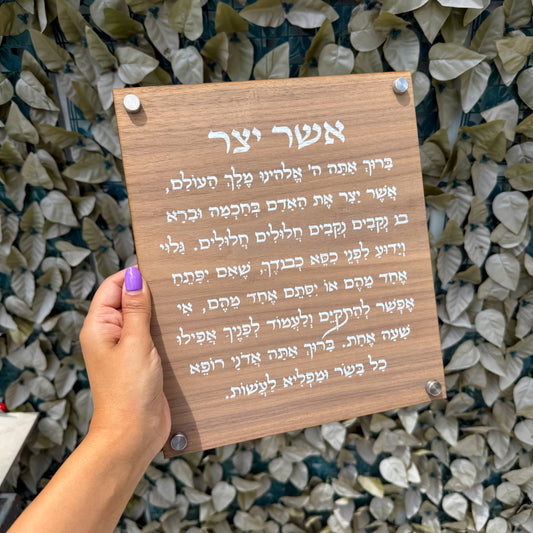 אשר יצר
בָּרוּךְ אַתָּה ה' אֱלֹהֵינוּ מֶלֶךְ הָעוֹלָם,
אֲשֶׁר יָצַר אֶת הָאָדָם בְּחָכְמָה וּבָרָא
בוֹ נְקָבִים נְקָבִים חֲלוּלִים חֲלוּלִים. גָּלוּי
וְיָדוּעַ לִפְנֵי כִסֵּא כְבוֹדֶךָ, שֶׁאִם יִפָּתֵחַ
אֶחָד מֵהֶם אוֹ יִסָּתֵם אֶחָד מֵהֶם, אִי
אֶפְשַׁר לְהִתְקַיֵּם וְלַעֲמוֹד לְפָנֶיךָ אֲפִילוּ
שָׁעָה אֶחָת. בָּרוּךְ אַתָּה אֲדֹנָי רוֹפֵא
כָל בָּשָׂר וּמַפְלִיא לַעֲשׂוֹת.